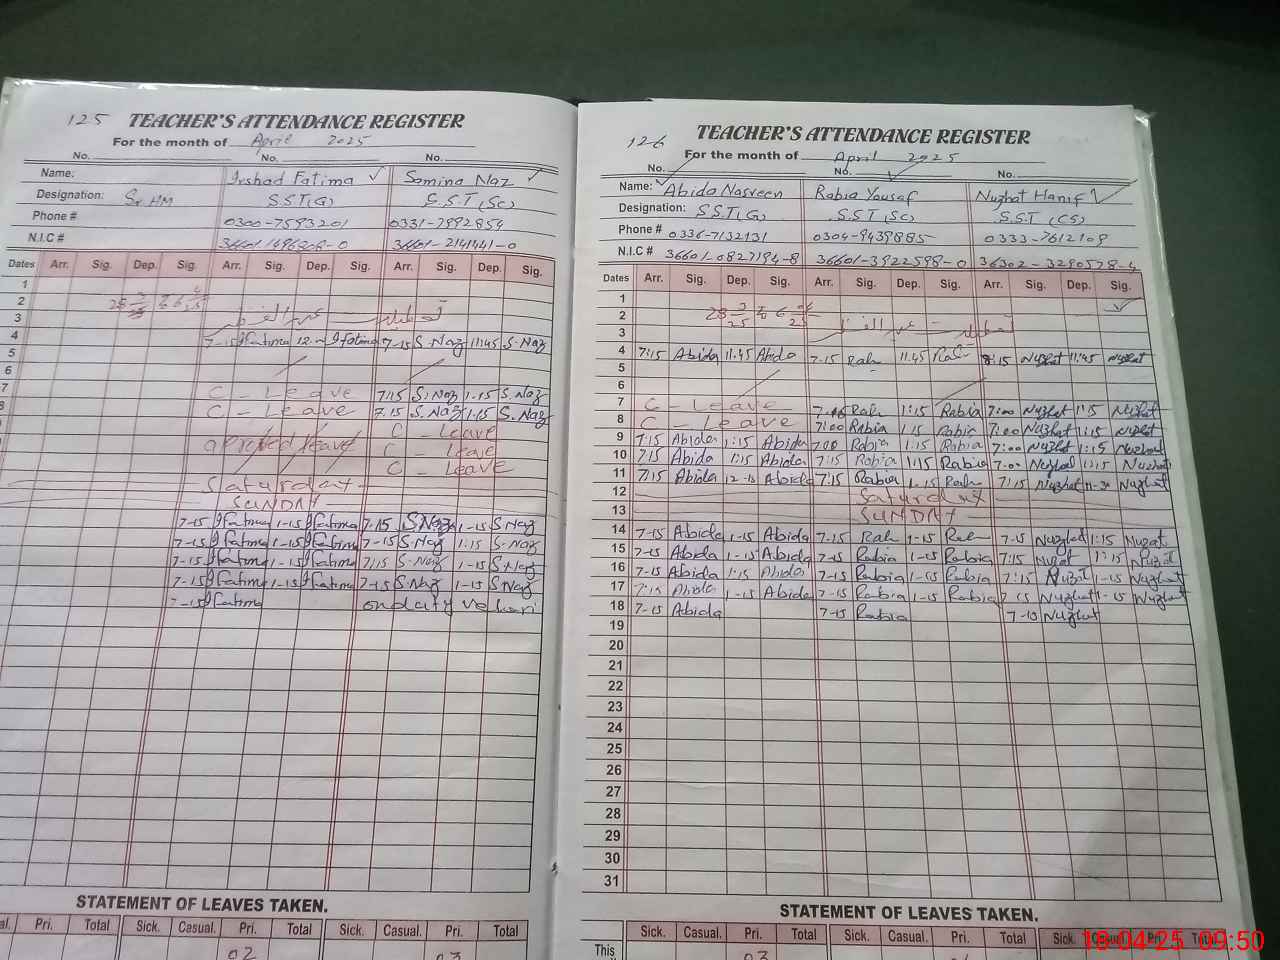 125 TEACHER'S ATTENDANCE REGISTER
For the month of April 2025
No. No. No.
Name: Irshad Fatima Samina Naz
Designation: Sr. HM S.S.T(G) S.S.T(SC)
Phone # 0300-7593201 0331-7992854
N.I.C # 36601-2141441-0
Dates Arr. Sig. Dep. Sig. Arr. Sig. Dep. Sig. Arr. Sig. Dep. Sig.
1
2
3
4 7-15 IFatima 12 IFatima 7-15 S.Naz 11:45 S.Naz
5
6
7 C - Leave 7:15 S.Naz 1-15 S.Naz
8 C - Leave 7.15 S.Naz 1.15 S.Naz
C - Leave
C - Leave
C - Leave
Saturday
SUNDAY
7-15 IFatima 1-15 IFatima 7.15 S.Naz 1-15 S.Naz
7-15 IFatima 1-15 IFatima 7-15 S.Naz 1:15 S.Naz
7-15 IFatima 1-15 IFatima 7:15 S-Naz 1-15 S.Naz
7-15 IFatima 1-15 IFatima 7-15 S.Naz 1-15 S.Naz
7-15 IFatima
STATEMENT OF LEAVES TAKEN.
Pri. Total Sick. Casual. Pri. Total Sick. Casual. Pri. Total
02 03
126 TEACHER'S ATTENDANCE REGISTER
For the month of April 2025
No. No. No.
Name: Abida Nasreen Rabia Yousaf Nuzhat Hanif
Designation: S.S.T(G) S.S.T(SC) S.S.T (CS)
Phone # 0336-7132131 0304-9439885 0333-7612109
N.I.C # 36601-0827194-8 36601-3922598-0 36302-3290578-4
Dates Arr. Sig. Dep. Sig. Arr. Sig. Dep. Sig. Arr. Sig. Dep. Sig.
1
2
3
4 7:15 Abida 11.45 Abida 7-15 11.45 8:15 Nuzhat 11:45 Nuzhat
5
6
7 C - Leave 1:15 Rabia 7:00 Nuzhat 1:15 Nuzhat
8 C - Leave 7:00 Rabia 1.15 Rabia 7:00 Nuzhat 1:15 Nuzhat
9 7:15 Abida 1:15 Abida 7:00 Rabia 1:15 Rabia 7:00 Nuzhat 1:15 Nuzhat
10 7:15 Abida 1:15 Abida 7:15 Rabia 1:15 Rabia 7-00 Nuzhat 1:15 Nuzhat
11 7:15 Abida 12-15 Abida 7:15 Rabia 1-15 7:15 Nuzhat 11-30 Nuzhat
12 Saturday
13 SUNDAY
14 7-15 Abida 1-15 Abida 7-15 1-15 7-15 Nuzhat 1:15 Nuzhat
15 7-15 Abida 1-15 Abida 7-15 Rabia 1-15 Rabia 7:15 1:15 Nuzhat
16 7-15 Abida 1:15 Abida 7-15 Rabia 1-15 Rabia 7:15 Nuzhat 1-15 Nuzhat
17 7:15 Abida 1-15 Abida 7-15 Rabia 1-15 Rabia 7-15 Nuzhat 1-15 Nuzhat
18 7-15 Abida 7-15 Rabia 7-10 Nuzhat
19
20
21
22
23
24
25
26
27
28
29
30
31
STATEMENT OF LEAVES TAKEN.
Sick. Casual. Pri. Total Sick. Casual. Pri. Total Sick. Casual. Pri. Total
This 03
18-04-25 09:50